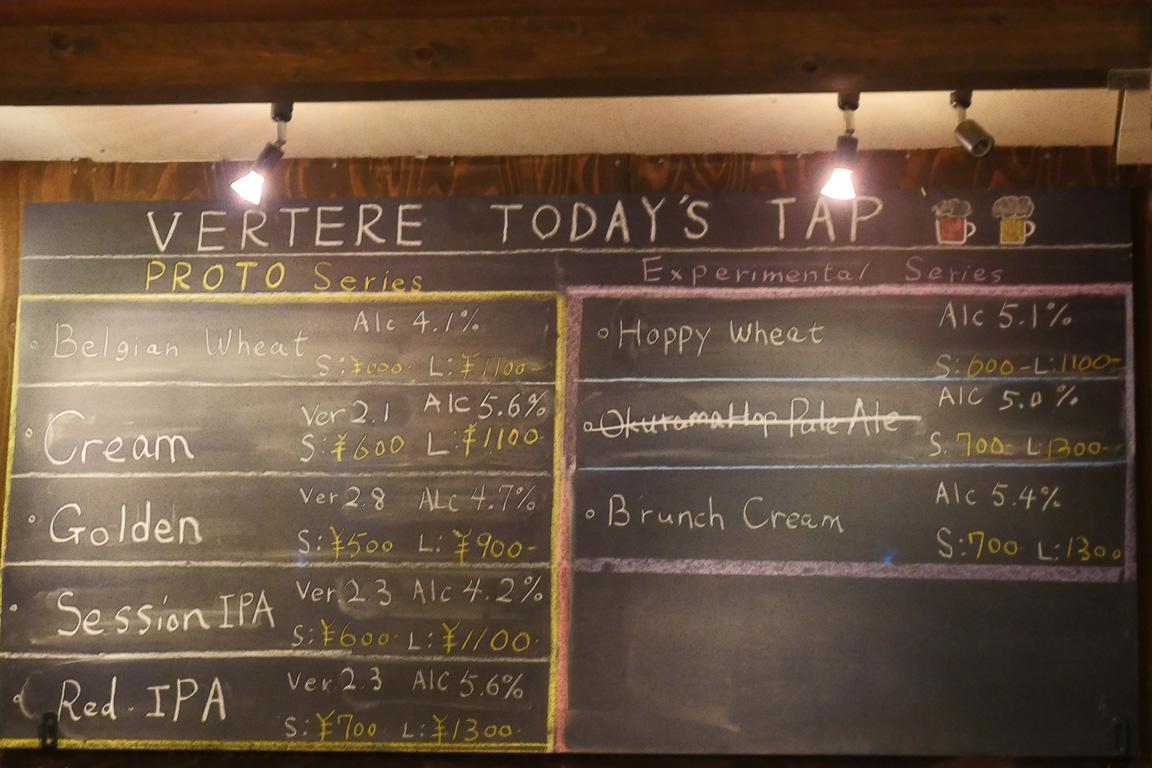 VERTERE TODAY'S TAP
PROTO Series
Belgian Wheat
Alc 4.1%
S:¥600- L:¥1100-
Cream
Ver 2.1 Alc 5.6%
S:¥600 L:¥1100-
Golden
Ver 2.8 ALC 4.7%
S:¥500 L:¥900-
Session IPA
Ver 2.3 Alc 4.2%
S:¥600- L:¥1100-
Red IPA
Ver 2.3 Alc 5.6%
S:¥700 L:¥1300-
Experimental Series
Hoppy Wheat
Alc 5.1%
S:600- L:1100-
Okutama Hop Pale Ale
Alc 5.0%
S.700- L.1300-
Brunch Cream
Alc 5.4%
S:700 L:1300